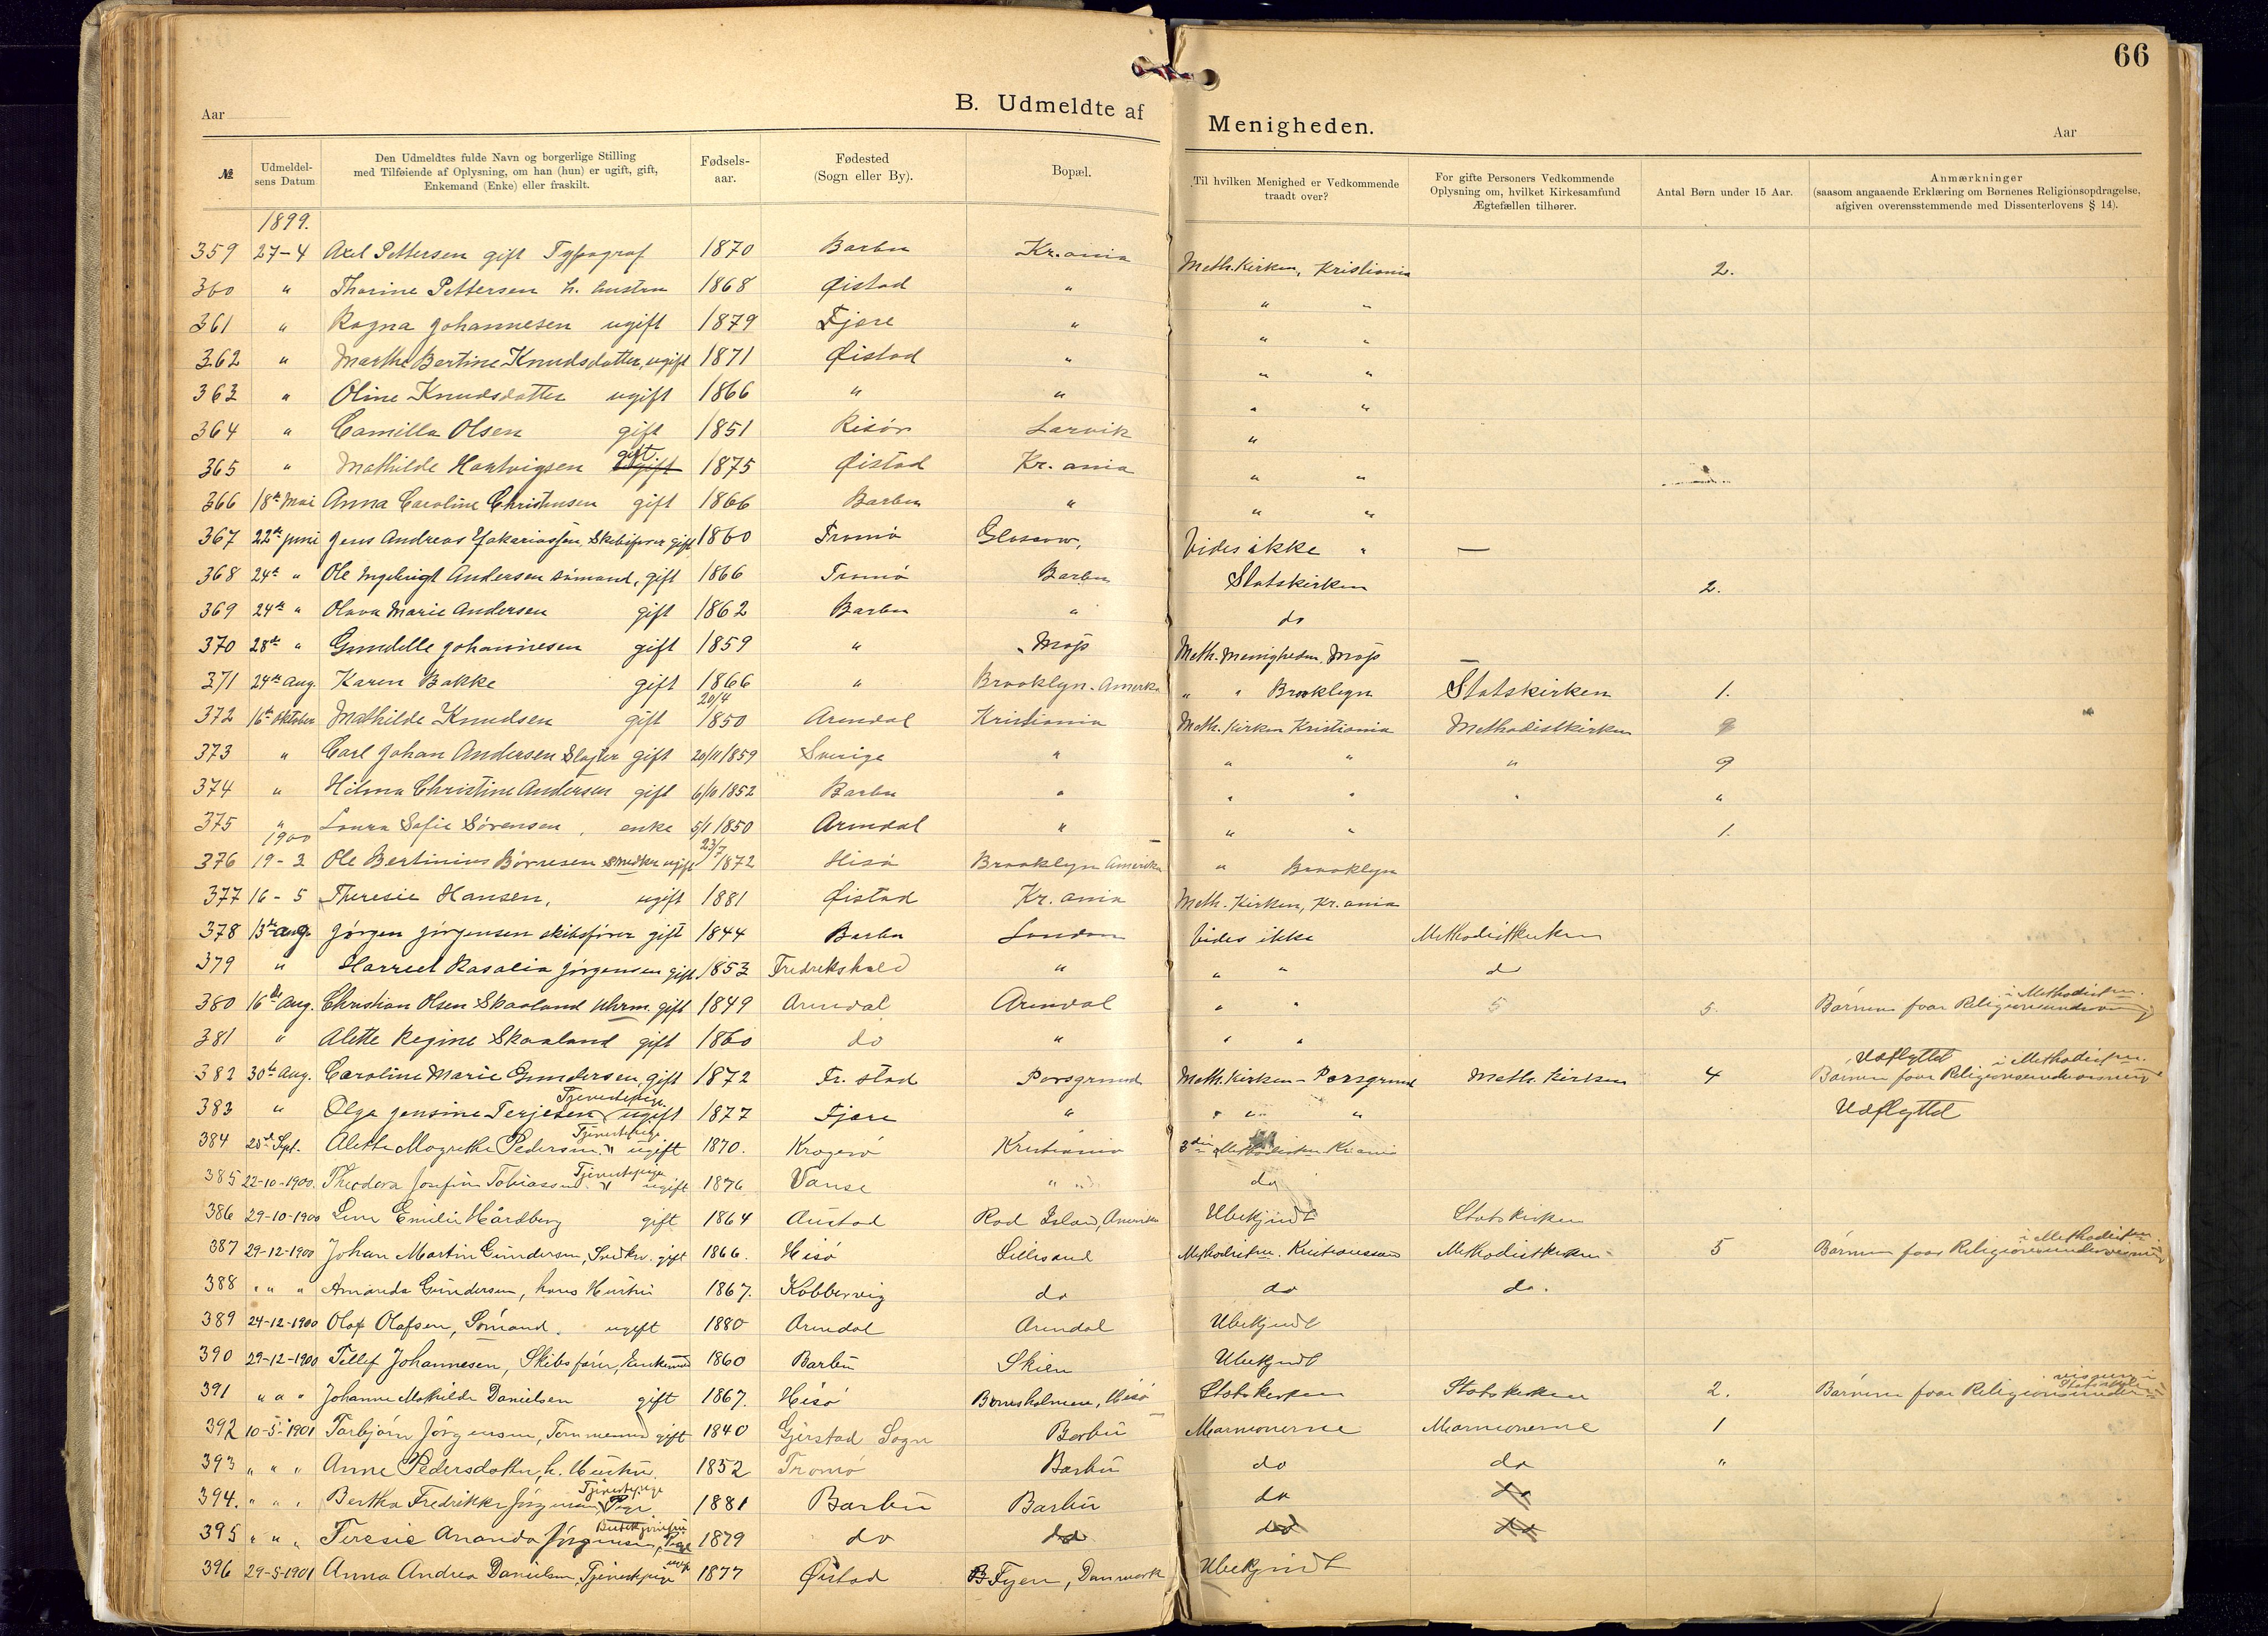 66
B. Udmeldte af Menigheden.
Aar Aar
№ Udmeldelsens Datum Den Udmeldtes fulde Navn og borgerlige Stilling med Tilføiende af Oplysning, om han (hun) er ugift, gift, Enkemand (Enke) eller fraskilt. Fødselsaar. Fødested (Sogn eller By). Bopæl. Til hvilken Menighed er Vedkommende traadt over? For gifte Personers Vedkommende Oplysning om, hvilket Kirkesamfund Ægtefællen tilhører. Antal Børn under 15 Aar. Anmærkninger (saasom angaaende Erklæring om Børnenes Religionsopdragelse, afgiven overensstemmende med Dissenterlovens § 14).
1899.
359 27-4 Axel Pettersen gift Typograf 1870 Barbu Kr.ania Meth. Kirken, Kristiania 2.
360 " Thorine Pettersen h. hustru 1868 Øistad " " "
361 " Ragna Johannesen ugift 1879 Fjære " " "
362 " Marthe Bertine Knudsdatter, ugift 1871 Øistad " " "
363 " Oline Knudsdatter ugift 1866 " " " "
364 " Camilla Olsen gift 1851 Risør Larvik "
365 " Mathilde Hartvigsen gift 1875 Øistad Kr. ania " "
366 18de Mai Anna Caroline Christensen gift 1866 Barbu " " "
367 22de juni Jens Andreas Zakariassen, Skibsfører gift 1860 Tromø Glascow, Vides ikke " —
368 24de " Ole Ingebrigt Andersen sømand, gift 1866 Tromø Barbu Statskirken 2.
369 24de " Olava Marie Andersen gift 1862 Barbu " do
370 28de " Gundelle Johannesen gift 1859 " Moss Meth. Menigheden, Moss —
371 24de Aug. Karen Bakke gift 1866 " Brooklyn. Amerika " " Brooklyn Statskirken 1.
372 16de Oktober Mathilde Knudsen gift 20/4 1850 Arendal Kristiania Meth. Kirken Kristiania Methodistkirken
373 " Carl Johan Andersen Slagter gift 20/11 1859 Sverige " " " " 9
374 " Hilma Christine Andersen gift 1852 Barbu " " " " "
375 " Laura Sofie Sørensen, enke 5/1 1850 Arendal " " " 1.
1900
376 19-3 Ole Bertinius Børresen Snedker ugift 23/7 1872 Hisø Brooklyn Amerika " Brooklyn
377 16-5 Theresie Hansen, ugift 1881 Øistad Kr. ania Meth. Kirken, Kr. ania
378 13de aug. Jørgen Jørgensen skibsfører gift 1844 Barbu London Vides ikke Methodistkirken
379 " Harriet Rosalia Jørgensen gift 1853 Fredrikshald " " " do
380 16de Aug. Christian Olsen Skaaland Uhrm. gift 1849 Arendal Arendal " " 5 5. Børnene faar Religionsundervisning i Methodistkn.
381 " Alette Regine Skaaland gift 1860 do " " "
382 30te Aug. Caroline Marie Gundersen, gift 1872 Fr. stad Porsgrund Meth. Kirken - Porsgrund Meth. Kirken 4 Udflyttet Børnene faar Religionsundervisning i Methodistkn.
383 " Olga Jensine Terjesen, Tjenestepige ugift 1877 Fjære " " " " Udflyttet
384 25de Sept. Alette Magrethe Pedersen Tjenestepige ugift 1870. Kragerø Kristiania 3die Methodistkn. Kr.ania
385 22-10-1900. Theodora Josefine Tobiassen Tjenestepige ugift 1876 Vanse " " do
386 29-10-1900 Lene Emilie Hårdberg gift 1864 Austad Rod Island, Amerika Ubekjendt Statskirken
387 29-12-1900 Johan Martin Gundersen, Snedkr. gift 1866. Hisø Lillesand Methodistkn. Kristianssand Methodistkirken 5 Børnene faar Religionsundervisning i Methodistkn.
388 " " " Amanda Gundersen, hans Hustru 1867. Kobbervig do do do.
389 24-12-1900 Olaf Olafsen, Sømand, ugift 1880 Arendal Arendal Ubekjendt
390 29-12-1900 Tellef Johannesen, Skibsfører, Enkemd 1860 Barbu Skien Ubekjendt
391 " " " Johanne Mathilde Danielsen gift 1867. Hisø Børresholmen, Hisø Statskirken Statskirken 2. Børnene faar Religionsundervisning i Statskirken
392 10-5-1901 Torbjørn Jørgensen, Tømmermd gift 1840 Gjerstad Sogn Barbu Mormonerne Mormonerne 1
393 " " " Anne Pedersdatter, h. Hustru. 1852 Tromø Barbu do do "
394. " " " Bertha Fredrikke Jørgensen, Tjenestepige Pige 1881 Barbu Barbu do do
395 " " " Teresie Ananda Jørgensen, Pige ugift 1879 do do do do
396 29-5-1901 Anna Andrea Danielsen, Tjenestepige 1877 Øistad Fyen, Danmark Ubekjendt